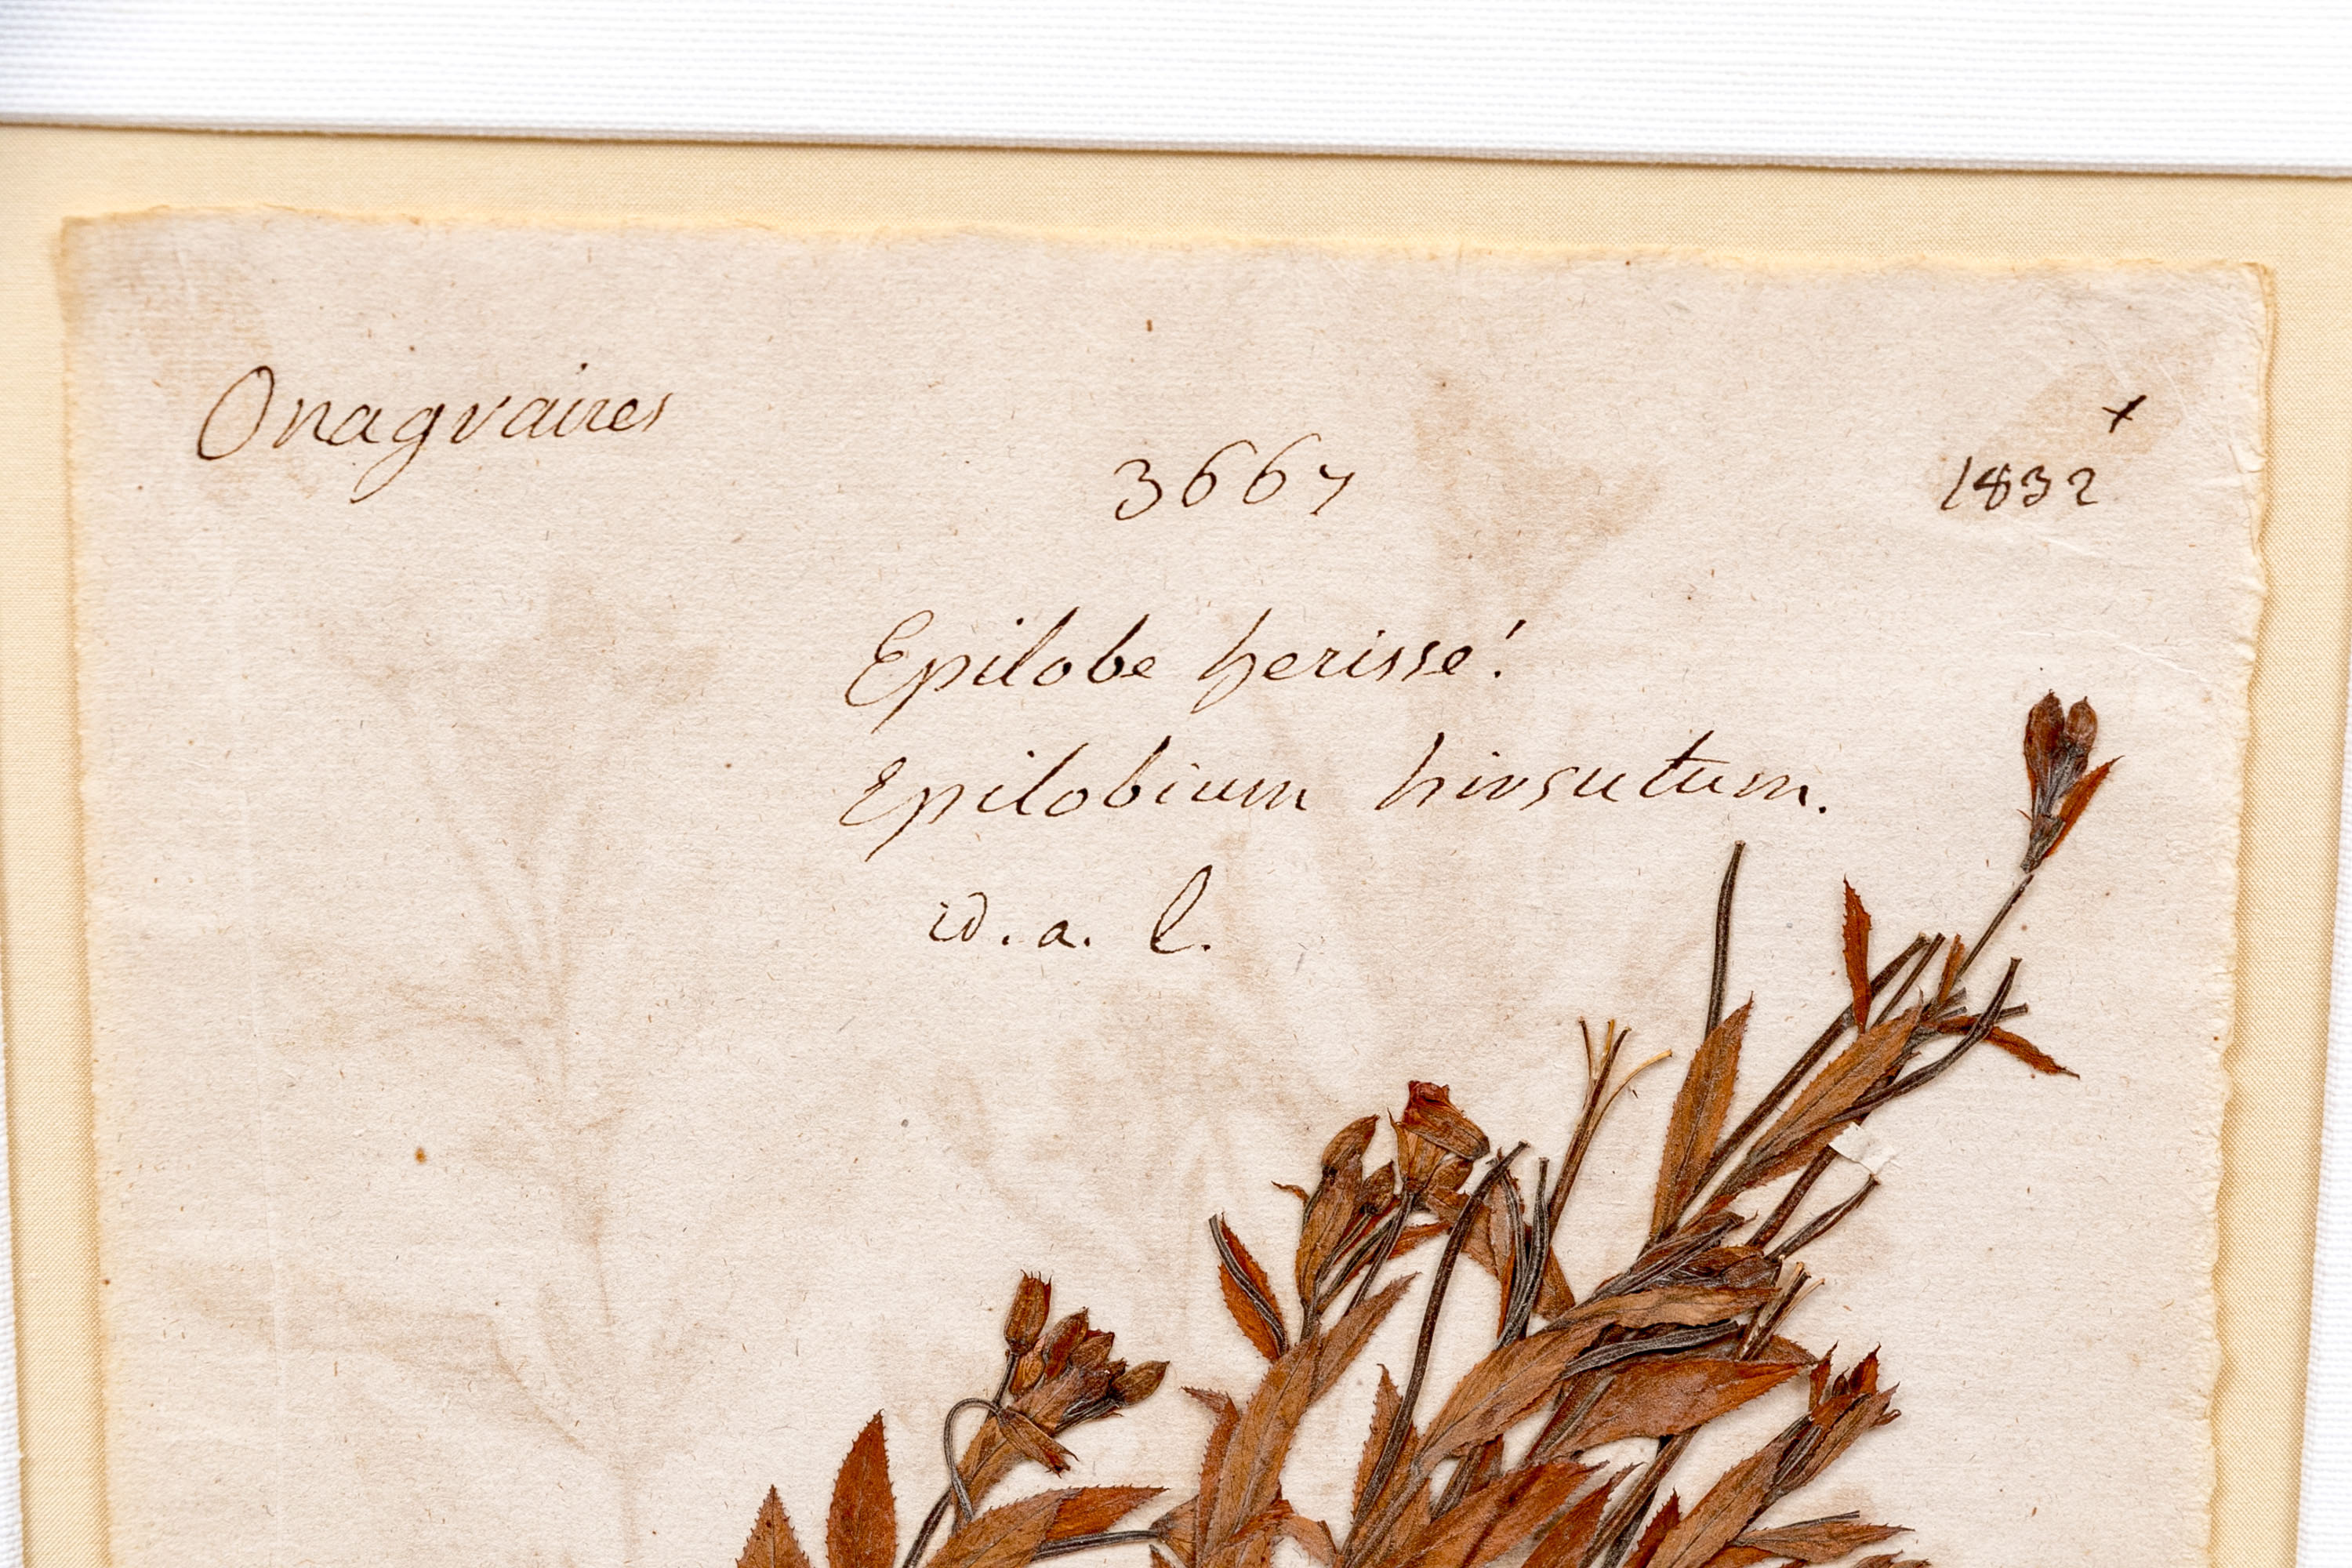 Onagraires
3667
+
1832
Epilobe herissé!
Epilobium hirsutum.
id. a. l.